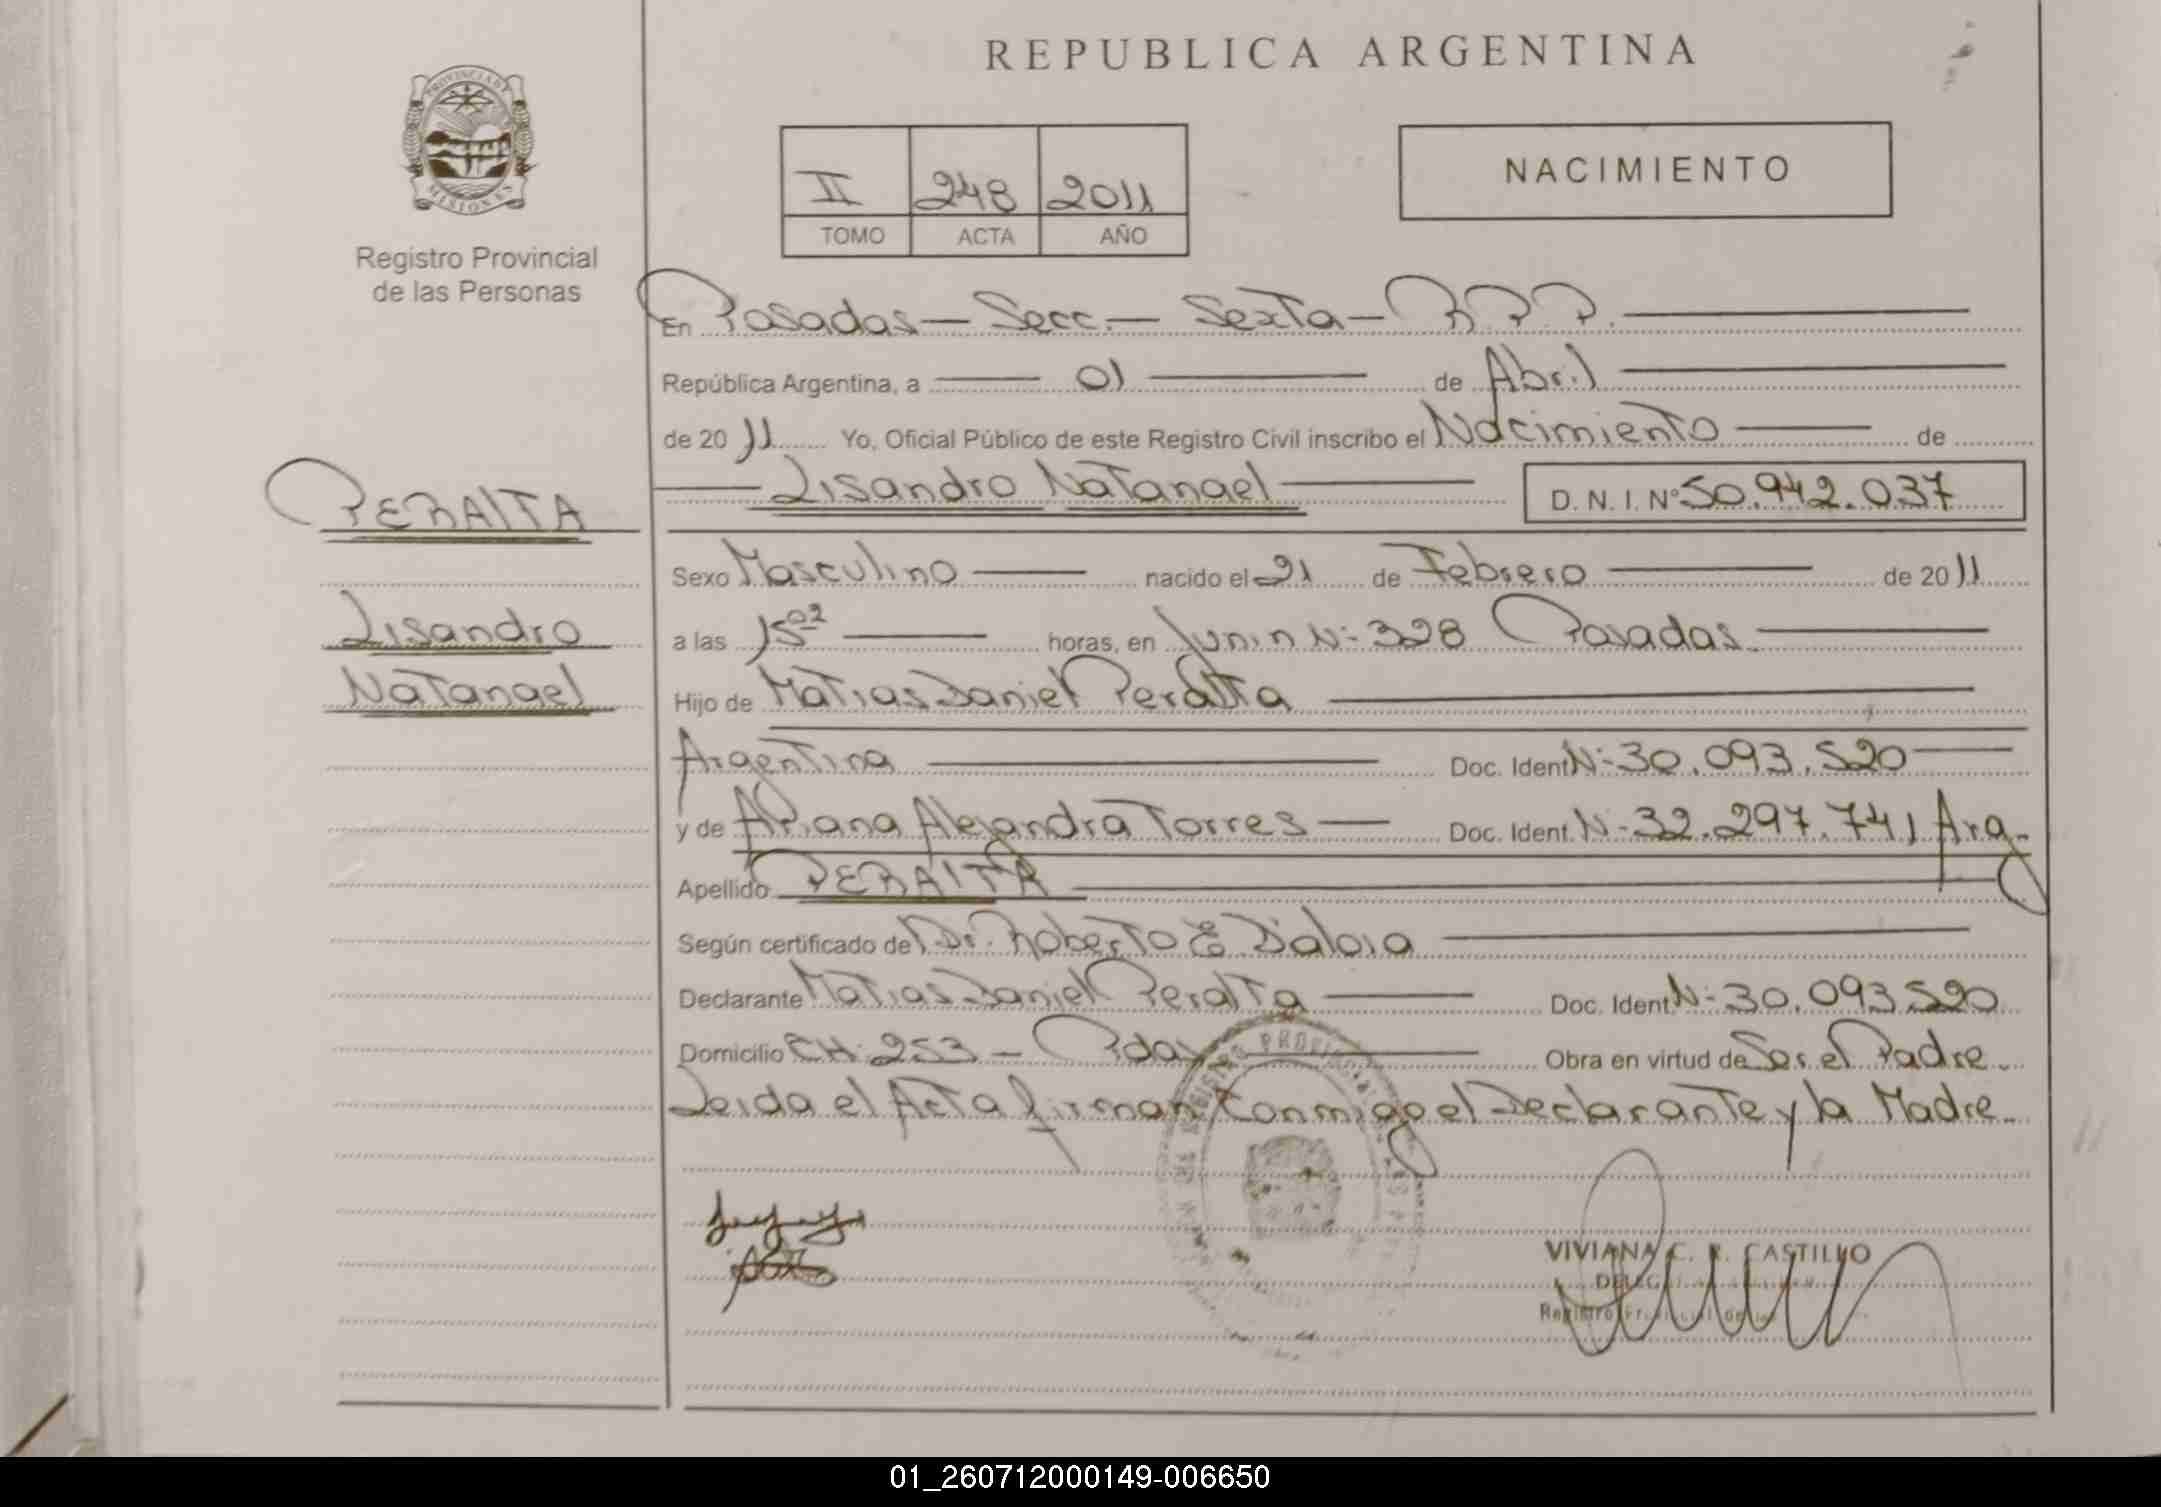 REPUBLICA ARGENTINA
PROVINCIA DE
MISIONES
Registro Provincial
de las Personas
II 248 2011
TOMO ACTA AÑO
NACIMIENTO
En Posadas - Secc. - Sexta - R.P.P.
República Argentina, a 01 de Abril
de 2011 Yo, Oficial Público de este Registro Civil inscribo el Nacimiento de
Lisandro Natanael D. N. I. Nº 50.942.037
PERALTA
Sexo Masculino nacido el 21 de Febrero de 2011
Lisandro
a las 15 02 horas, en Junin Nº 328 Posadas
Natanael
Hijo de Matias Daniel Peralta
Argentina Doc. Ident. Nº 30.093.520
y de Alejandra Torres Doc. Ident. Nº 32.297.741 Arg.
Apellido PERALTA
Según certificado de Dr. Roberto E.
Declarante Matias Daniel Peralta Doc. Ident. Nº 30.093.520
Domicilio CH. 253 - Pdas Obra en virtud de Ser el Padre.
Leida el Acta firman Conmigo el Declarante y la Madre.
REGISTRO PROVINCIAL
VIVIANA C. R. CASTILLO
Registro Provincial de las
01_260712000149-006650